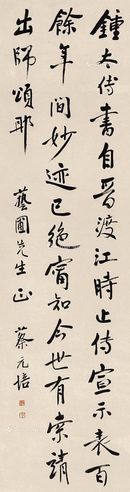 鍾太傅書自晉渡江時止傳宣示表百
餘年間妙迹已絕寧知今世有索靖
出師頌耶
藝圃先生正 蔡元培